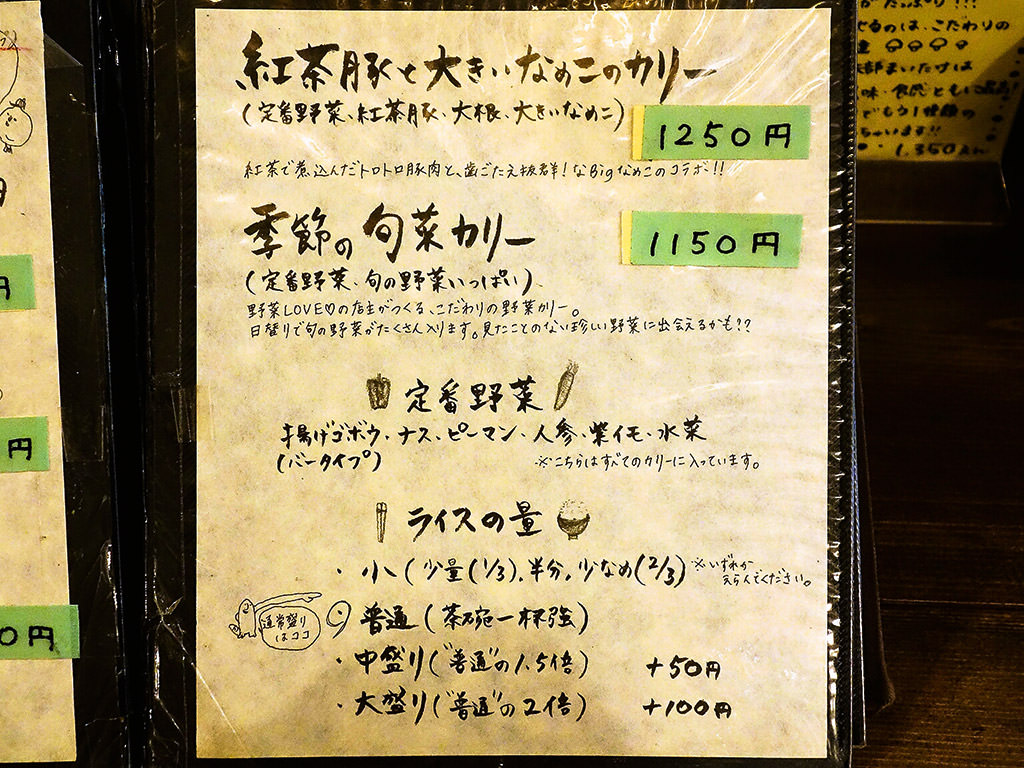 紅茶豚と大きいなめこのカリー
(定番野菜、紅茶豚、大根、大きいなめこ)
1250円
紅茶で煮込んだトロトロ豚肉と、歯ごたえ抜群!なBigなめこのコラボ!!
季節の旬菜カリー
1150円
(定番野菜、旬の野菜いっぱい)
野菜LOVE♡の店主がつくる、こだわりの野菜カリー。
日替りで旬の野菜がたくさん入ります。見たことのない珍しい野菜に出会えるかも??
定番野菜
揚げゴボウ・ナス・ピーマン・人参・紫イモ・水菜
(バータイプ)
※こちらはすべてのカリーに入っています。
ライスの量
・小(少量(1/3)、半分、少なめ(2/3)
※いずれか
えらんでください。
通常盛り
はココ
普通(茶碗一杯強)
・中盛り("普通"の1.5倍) +50円
・大盛り("普通"の2倍) +100円
円
円
0円
るのは、こだわりの
まいたけは
味・食感ともに
でもう1種類の
います!!
1,350